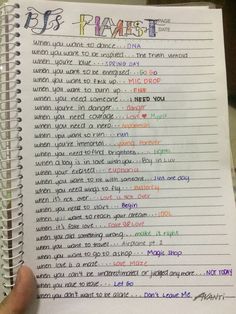 BTS PLAYLIST
PAGE
DATE
when you want to dance... DNA
when you want to be inspired... The truth untold
when you're blue... SPRING DAY
when you want to be energised... Go Go
when you want to fuck up... MIC DROP
when you want to burn up... FIRE
when you need someone... I NEED YOU
when you're in danger... danger
when you need courage... Love Myself
when you need a hero... Anpanman
when you want to run... run
when you're immortal... young forever
when you need to find brightness... Lights
when a boy is in love wish you... Boy in Luv
when your excited... euphoria
when you want to be with someone... Jin one day
when you need wings to fly... Butterfly
when it's not over... Love is not over
when you need to start... Begin
when you want to reach your dream... IDOL
when it's fake love... Fake love
when you did something wrong... make it right
when you want to travel... Airplane pt. 2
when you want to go to a shop... Magic Shop
when love is a maze... Love maze
when you can't be underestimated or judged any more... NOT TODAY
when you have to leave... Let Go
when you don't want to be alone... Don't Leave Me.
AVANTI